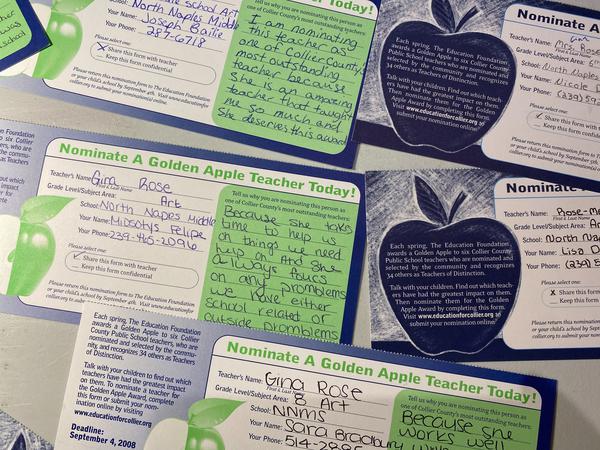 school
Today!
school Art
School: North Naples Middle
Your Name: Joseph Bailie
Your Phone: 287-6718
Please select one:
X Share this form with teacher
Keep this form confidential
Please return this nomination form to The Education Foundation
by September 4th. Visit www.educationfor
collier.org to submit your nomination(s) online.
Tell us why you are nominating this person as
one of Collier County's most outstanding teachers:
I am nominating
this teacher as
one of Collier County's
most outstanding
teacher because
She is an amazing
teacher that taught
me so much and
she deserves this award
Each spring, The Education Foundation
awards a Golden Apple to six Collier
County Public School teachers who are nominated
and selected by the community and recognizes
34 others as Teachers of Distinction.
Talk with your children. Find out which teach-
ers have had the greatest impact on them.
Then nominate them for the Golden
Apple Award by completing this form.
Visit www.educationforcollier.org to
submit your nomination online!
Nominate A
Teacher's Name: Mrs. Rose
Grade Level/Subject Area: 6th
School: North Naples
Your Name: Nicole D
Your Phone: (239)59
Please select one:
Share this form
Keep this form confidential
Please return this nomination form to The
or your child's school by September 5th.
collier.org to submit your nomination(s)
Nominate A Golden Apple Teacher Today!
Teacher's Name: Gina Rose
First & Last Name
Grade Level/Subject Area: Art
School: North Naples Middle
Your Name: Midsotys Felipe
Your Phone: 239-465-2096
Please select one:
Share this form with teacher
Keep this form confidential
Tell us why you are nominating this person as
one of Collier County's most outstanding teachers:
Because she takes
time to help us
on things we need
help on And she
always foucs
on any promblems
we have either
school related or
outside promblems
Each spring, The Education Foundation
awards a Golden Apple to six Collier County
Public School teachers who are nominated and
selected by the community and recognizes
34 others as Teachers of Distinction.
Talk with your children. Find out which teach-
ers have had the greatest impact on them.
Then nominate them for the Golden
Apple Award by completing this form.
Visit www.educationforcollier.org to
submit your nomination online!
Nomina
Teacher's Name: Rose-M
Grade Level/Subject Area: Ar
School: North Na
Your Name: Lisa D
Your Phone: (239) 5
Please select one:
X Share this form
Keep this form
Please return this nomination form
or your child's school by September
collier.org to submit your nomina
Each spring, The Education Foundation
awards a Golden Apple to six Collier
County Public School teachers who are
nominated and selected by the commu-
nity, and recognizes 34 others as Teachers
of Distinction.
Talk with your children to find out which
teachers have had the greatest impact
on them. To nominate a teacher for
the Golden Apple Award, complete
this form or submit your nom-
ination online by visiting
www.educationforcollier.org
Deadline:
September 4, 2008
Nominate A Golden Apple Teacher Today!
Teacher's Name: Gina Rose
First & Last Name
Grade Level/Subject Area: 8 Art
School: NNms
Your Name: Sara Bradbury
Your Phone: 514-28
Tell us why you are nominating this person as
one of Collier County's most outstanding teachers:
Because she
works well